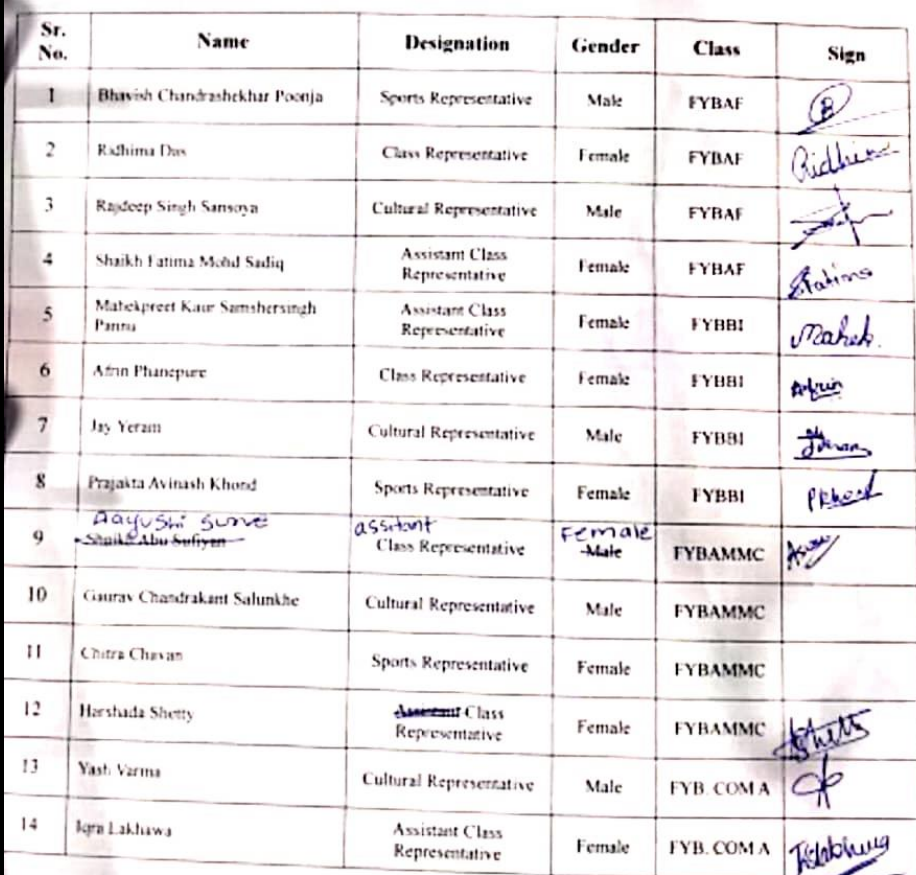 Sr. No. Name Designation Gender Class Sign
1 Bhavish Chandrashekhar Poonja Sports Representative Male FYBAF B
2 Ridhima Das Class Representative Female FYBAF Ridhima
3 Rajdeep Singh Sansoya Cultural Representative Male FYBAF
4 Shaikh Fatima Mohd Sadiq Assistant Class Representative Female FYBAF Fatima
5 Mahekpreet Kaur Samshersingh Pannu Assistant Class Representative Female FYBBI Mahek.
6 Afrin Phanepure Class Representative Female FYBBI Afrin
7 Jay Yeram Cultural Representative Male FYBBI
8 Prajakta Avinash Khond Sports Representative Female FYBBI PKhond
Aayushi Surve assitant Female
9 Shaikh Abu Sufiyan Class Representative Male FYBAMMC
10 Gaurav Chandrakant Salunkhe Cultural Representative Male FYBAMMC
11 Chitra Chavan Sports Representative Female FYBAMMC
12 Harshada Shetty Assistant Class Representative Female FYBAMMC HShetty
13 Yash Varma Cultural Representative Male FYB. COM A
14 Iqra Lakhawa Assistant Class Representative Female FYB. COM A